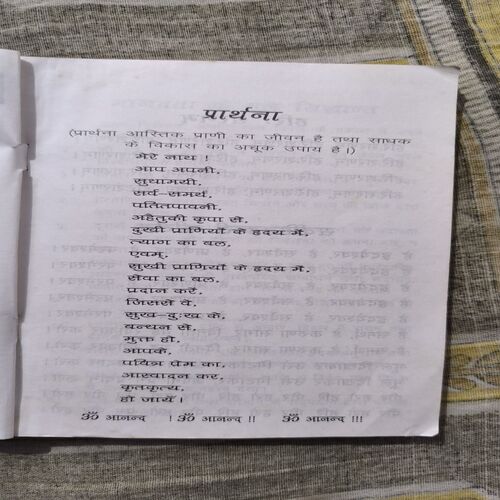 प्रार्थना
(प्रार्थना आस्तिक प्राणी का जीवन है तथा साधक
के विकास का अचूक उपाय है।)
मेरे नाथ !
आप अपनी,
सुधामयी,
सर्व-समर्थ,
पतितपावनी,
अहैतुकी कृपा से,
दुखी प्राणियों के हृदय में,
त्याग का बल,
एवम्,
सुखी प्राणियों के हृदय में,
सेवा का बल,
प्रदान करें,
जिससे वे,
सुख-दुःख के,
बन्धन से,
मुक्त हो,
आपके,
पवित्र प्रेम का,
आस्वादन कर,
कृतकृत्य,
हो जायँ।
ॐ आनन्द ! ॐ आनन्द !! ॐ आनन्द !!!